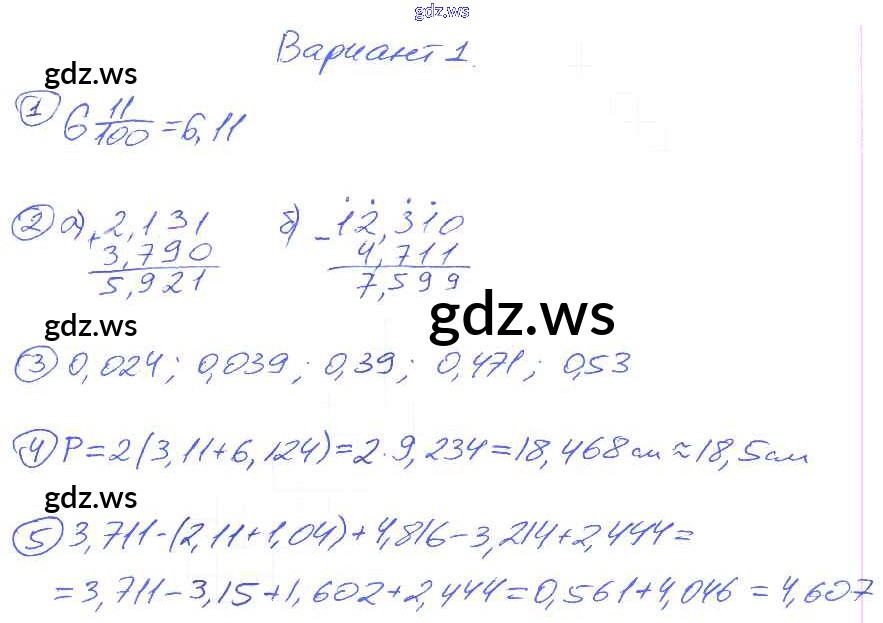 gdz.ws
Вариант 1.
gdz.ws
① 6 11/100 = 6,11
② а) + 2,131 б) - 12,310
3,790 4,711
5,921 7,599
gdz.ws
gdz.ws
③ 0,024; 0,039; 0,39; 0,471; 0,53
④ P=2(3,11+6,124)=2·9,234=18,468 см ≈ 18,5 см
gdz.ws
⑤ 3,711-(2,11+1,04)+4,816-3,214+2,444=
=3,711-3,15+1,602+2,444=0,561+4,046=4,607